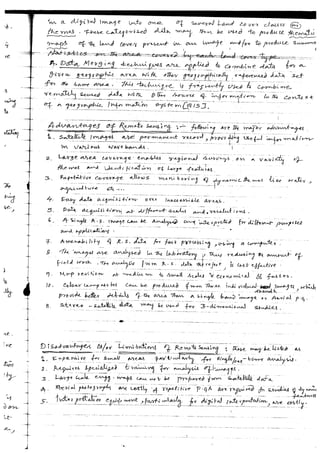 in a digital image into one of several land cover classes or
themes. These categorised data may then be used to produce thematic
maps of the land cover present in an image and/or to produce summary
statistics on the area covered by each land cover type.
A. Data Merging techniques are applied to combine data for a
given geographic area with other geographically referenced data set
for the same area. This technique is frequently used to combine
remotely sensed data with other source of information in the context
of a geographic information system [GIS].
Advantages of Remote sensing :- following are the major advantages
1. Satellite images are permanent record, providing useful information
in various wave bands.
2. Large area coverage enables regional surveys on a variety of
themes and identification of large features
3. Repetative coverage allows monitoring of dynamic themes like water,
agriculture etc...
4. Easy data acquisition over inaccessible areas.
5. Data acquisition at different scales and resolutions.
6. A single R.S. image can be analysed and interpreted for different purposes
and applications.
7. Amenability of R.S. data for fast processing, using a computer.
8. The images are analysed in the laboratory, thus reducing the amount of
field work. The analysis from R.S. data therefore, is cost effective
9. Map revision at medium to small scales is economical & faster.
10. Colour composites can be produced from three individual band images, which
provide better details of the area than a single band image or Aerial P.G.
11. Stereo - satellite data may be used for 3-dimensional studies.
Disadvantages &/or Limitations of Remote sensing : these may be listed as
1. Expensive for small areas particularly for single/one-time analysis.
2. Requires specialised training for analysis of images.
3. Large scale engg. maps can not be prepared from satellite data
4. Aerial photographs are costly if repetitive P.G. are required to studies of dynamic
features
5. Interpretation equipment, particularly for digital interpretation, are costly.